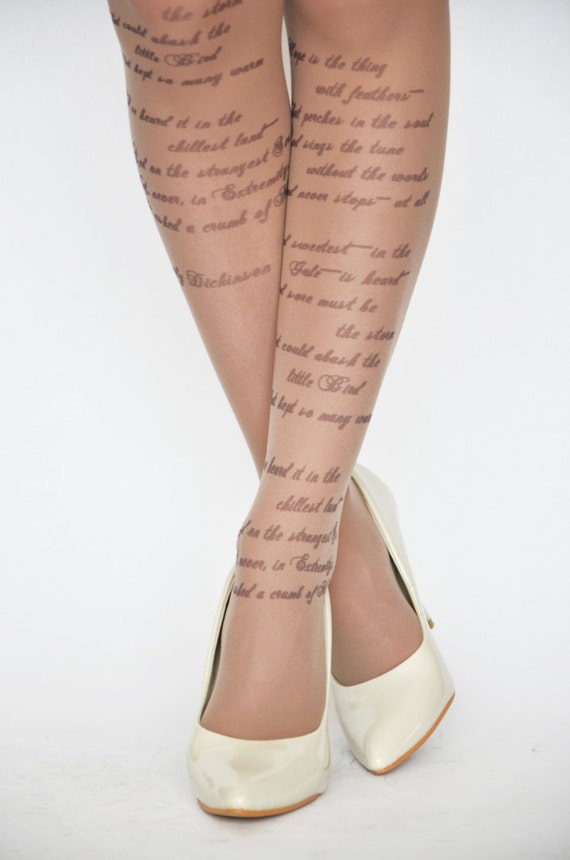 the storm
could abash the
little Bird
kept so many warm
heard it in the
chillest land—
on the strangest
never, in Extremity,
asked a crumb of
Dickinson
Hope is the thing
with feathers—
perches in the soul
sings the tune
without the words
never stops— at all
sweetest—in the
Gale—is heard—
sore must be
the storm
could abash the
little Bird
kept so many warm
heard it in the
chillest land—
on the strangest
never, in Extremity,
asked a crumb of